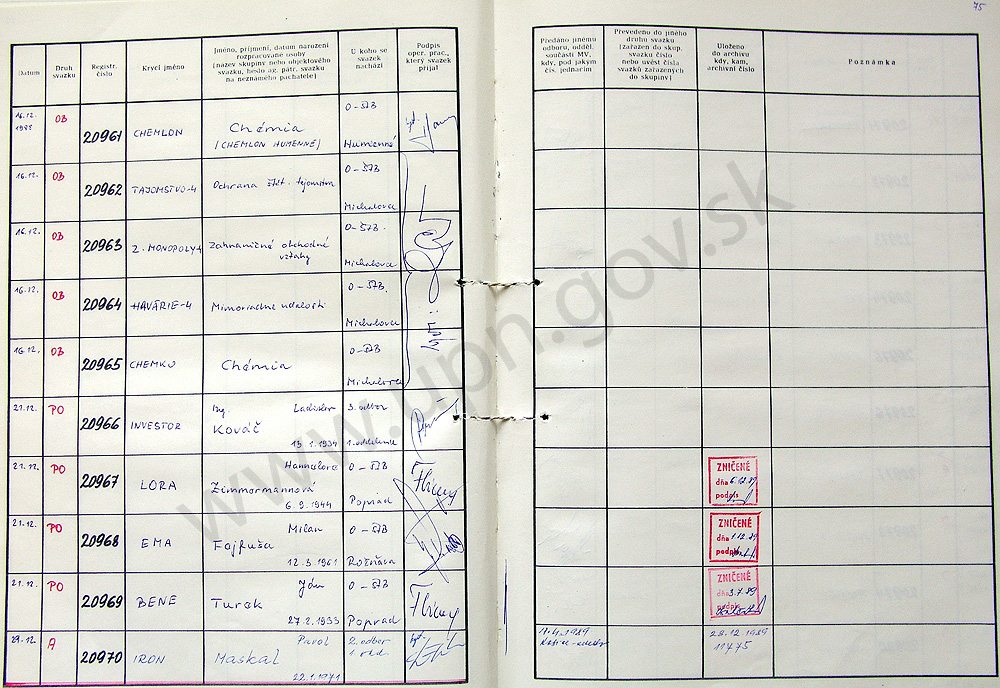 75
Datum
Druh svazku
Registr. číslo
Krycí jméno
Jméno, příjmení, datum narození
rozpracované osoby
(název skupiny nebo objektového
svazku, heslo ag. pátr. svazku
na neznámého pachatele)
U koho se
svazek
nachází
Podpis
oper. prac.,
který svazek
přijal
Předáno jinému
odboru, odděl.
součásti MV,
kdy, pod jakým
čís. jednacím
Převedeno do jiného
druhu svazku
(zařazen do skup.
svazku číslo
nebo uvést čísla
svazků zařazených
do skupiny)
Uloženo
do archivu
kdy, kam,
archivní číslo
Poznámka
16.12.
1988
OB
20961
CHEMLON
Chémia
(CHEMLON HUMENNÉ)
O-ŠTB
Humenné
16.12.
OB
20962
TAJOMSTVO-4
Ochrana štát. tajomstva
O-ŠTB
Michalovce
16.12.
OB
20963
Z. MONOPOLY-4
Zahraničné obchodné
vzťahy
O-ŠTB.
Michalovce
16.12.
OB
20964
HAVÁRIE-4
Mimoriadne udalosti
O-ŠTB.
Michalovce
16.12.
OB
20965
CHEMKO
Chémia
O-ŠTB
Michalovce
21.12.
PO
20966
INVESTOR
Ing. Ladislav
Kováč
13.1.1934
3. odbor
1. oddelenie
21.12.
PO
20967
LORA
Hannelore
Zimmormannová
6.9.1944
O-ŠTB
Poprad
ZNIČENÉ
dňa 6.12.89
podpis
21.12.
PO
20968
EMA
Milan
Fajfuša
12.3.1961
O-ŠTB
Rožňava
ZNIČENÉ
dňa 1.12.89
podpis
21.12.
PO
20969
BENE
Ján
Turek
27.2.1933
O-ŠTB
Poprad
ZNIČENÉ
dňa 3.7.89
podpis
29.12.
A
20970
IRON
Pavol
Maskal
22.1.1971
2. odbor
1 odd.
11.4.1989
28.12.1989
11475
www.upn.gov.sk